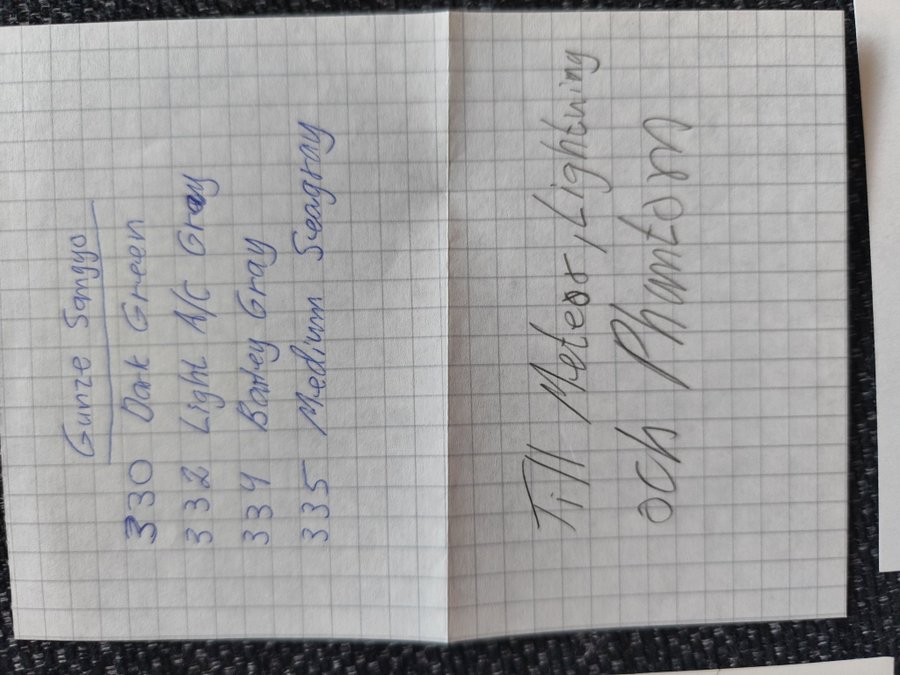 Gunze Sangyo
330 Dark Green
332 Light A/C Gray
334 Barley Gray
335 Medium Seagray
Till Meteor, Lightning
och Phantom